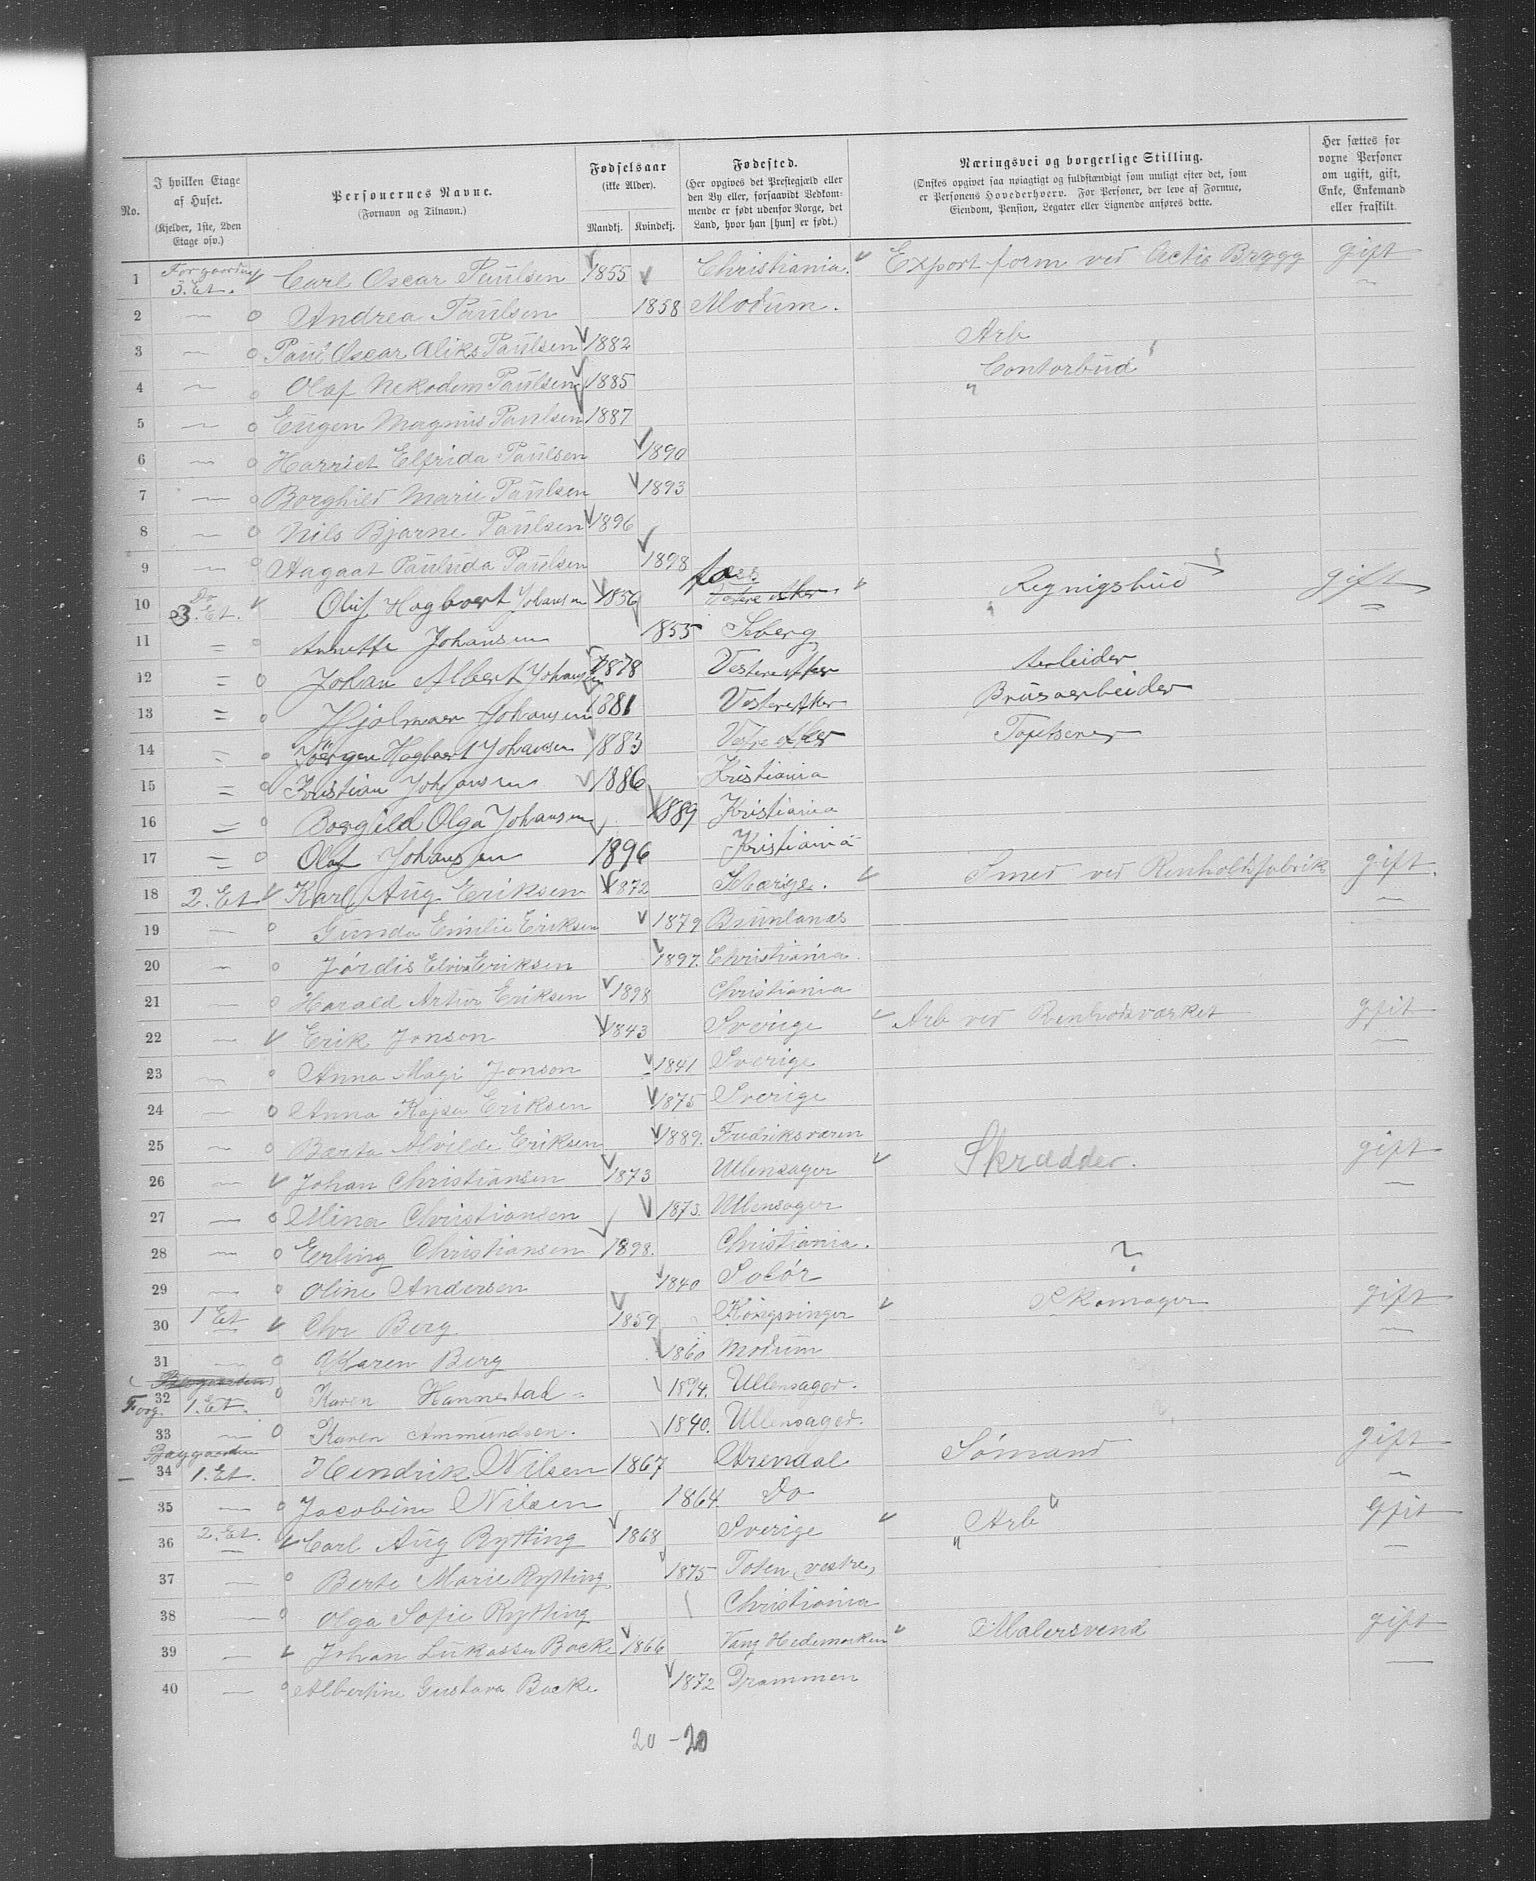 No.
I hvilken Etage af Huset. (Kjelder, 1ste, 2den Etage osv.)
Personernes Navne. (Fornavn og Tilnavn.)
Fødselsaar (ikke Alder). Mandkj. Kvindekj.
Fødested. (Her opgives det Prestegjæld eller den By eller, forsaavidt Vedkommende er født udenfor Norge, det Land, hvor han [hun] er født.)
Næringsvei og borgerlige Stilling. (Ønskes opgivet saa nøiagtigt og fuldstændigt som muligt efter det, som er Personens Hovederhverv. For Personer, der leve af Formue, Eiendom, Pension, Legater eller Lignende anføres dette.
Her sættes for voxne Personer om ugift, gift, Enke, Enkemand eller fraskilt.
1 Forgaarding 3. Et. Carl Oscar Paulsen 1855 Christiania. Export form ved Actie Brygg gift
2 — Andrea Paulsen 1858 Modum. —
3 — Paul Oscar Aliks Paulsen 1882 Arb
4 — Olaf Nekodem Paulsen 1885 " Contorbud
5 — Eugen Magnus Paulsen 1887
6 — Harriet Elfrida Paulsen 1890
7 — Borghild Marie Paulsen 1893
8 — Nils Bjarne Paulsen 1896
9 — Aagaat Paulida Paulsen 1898
10 Do 3. Et. Oluf Hagbart Johansen 1856 Vestre Aker Regnigsbud gift
11 = Annette Johansen 1855 Seberg =
12 = Johan Albert Johansen 1878 Vestre Aker Arbeider
13 = Hjalmar Johansen 1881 Vestre Aker Brusarbeider
14 = Jörgen Hagbart Johansen 1883 Vestre Aker Tapetserer
15 = Kristian Johansen 1886 Kristiania
16 = Borgild Olga Johansen 1889 Kristiania
17 = Olaf Johansen 1896 Kristiania
18 2. Et Karl Aug Eriksen 1872 Sverige. Smed ved Renholdsfabrik gift.
19 — Gunda Emilie Eriksen 1879 Brunlanæs —
20 — Jórdis Elvira Eriksen 1897. Christiania.
21 — Harald Artur Eriksen 1898 Christiania
22 — Erik Jonson 1843 Sverige Arb ved Renholdsværket gfit
23 — Anna Magi Jonson 1841 Sverige —
24 — Anna Kajsa Eriksen 1875 Sverige
25 — Bærta Alvilde Eriksen 1889. Fredriksværen
26 — Johan Christiansen 1873 Ullensager Skrædder. gift
27 — Mina Christiansen 1873. Ullensager —
28 — Erling Christiansen 1898. Christiania.
29 — Oline Andersen 1840 Solór ?
30 1 Et Chr Berg 1859 Kongsvinger Skomager gift
31 — Karen Berg 1860 Modum —
32 Forg. 1. Et. Karen Hannestad 1874. Ullensager.
33 — Karen Ammundsen. 1840. Ullensager.
34 Baggaarden 1. Et. Hendrik Nilsen 1867 Arendal Sómand gift
35 — Jacobine Nilsen 1864. Do —
36 2. Et. Carl Aug Rytting 1868 Sverige " Arb " gfit
37 — Berte Marie Rytting 1875 Toten, vestre, —
38 — Olga Sofie Rytting Christiania
39 — Johan Lukassen Backe 1866 Vang Hedemarken Malersvend gift
40 — Albertine Gustava Backe 1872 Drammen —
20 - 20